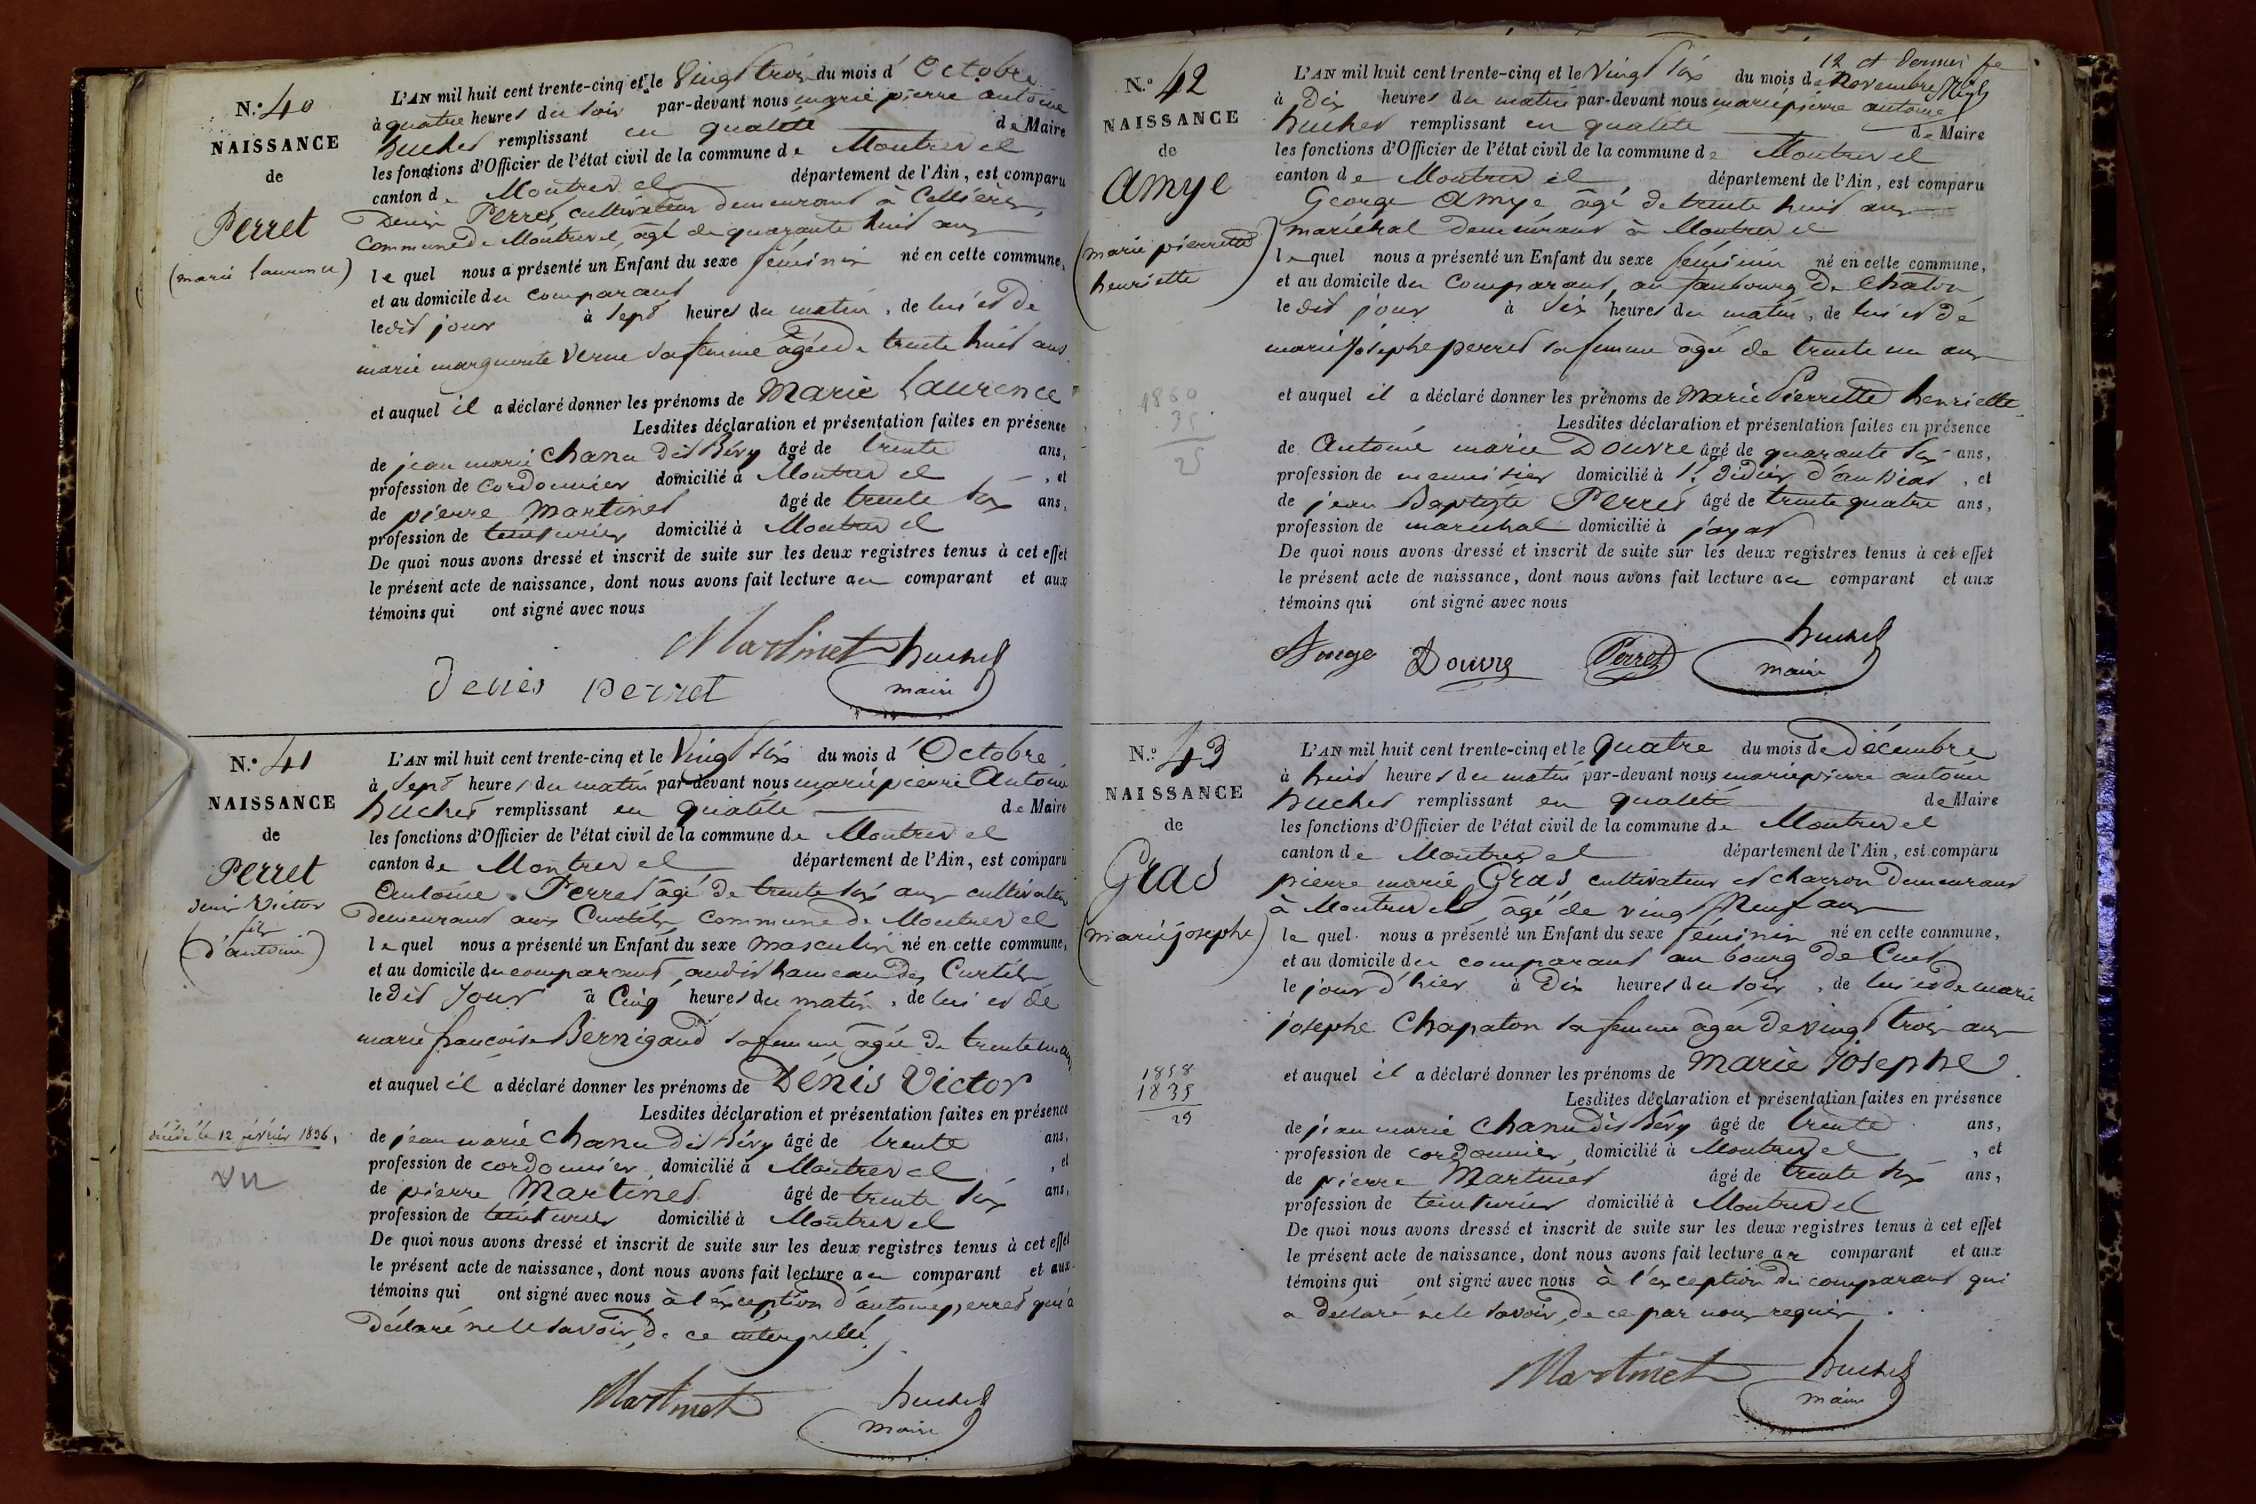 N.º 40
NAISSANCE
de
Perret
(marie Laurence)
L'AN mil huit cent trente-cinq et le vingt trois du mois d'Octobre
à quatre heures du soir par-devant nous marie pierre antoine
huchet remplissant en qualité de Maire
les fonctions d'Officier de l'état civil de la commune de Montrevel
canton de Montrevel département de l'Ain, est comparu
Denis Perret, cultivateur demeurant à
commune de Montrevel, âgé de quarante huit ans
lequel nous a présenté un Enfant du sexe féminin né en cette commune,
et au domicile du comparant
ledit jour à sept heures du matin, de lui et de
marie marguerite Verne sa femme âgée de trente huit ans
et auquel il a déclaré donner les prénoms de Marie Laurence
Lesdites déclaration et présentation faites en présence
de jean marie Chanu dit Béry âgé de trente ans,
profession de cordonnier domicilié à Montrevel, et
de pierre Martinet âgé de trente six ans,
profession de teinturier domicilié à Montrevel
De quoi nous avons dressé et inscrit de suite sur les deux registres tenus à cet effet
le présent acte de naissance, dont nous avons fait lecture au comparant et aux
témoins qui ont signé avec nous
Martinet huchet
denis perret maire
N.º 41
NAISSANCE
de
Perret
denis Victor
fils
(d'antoine)
décédé le 12 février 1836,
Vu
L'AN mil huit cent trente-cinq et le Vingt six du mois d'Octobre
à sept heures du matin par-devant nous marie pierre Antoine
huchet remplissant en qualité de Maire
les fonctions d'Officier de l'état civil de la commune de Montrevel
canton de Montrevel département de l'Ain, est comparu
Antoine Perret âgé de trente six ans cultivateur
demeurant aux Curtils commune de Montrevel
lequel nous a présenté un Enfant du sexe masculin né en cette commune,
et au domicile du comparant, audit hameau des Curtils
ledit jour à Cinq heures du matin, de lui et de
marie françoise Bernigaud sa femme âgée de trente un ans
et auquel il a déclaré donner les prénoms de Dénis Victor
Lesdites déclaration et présentation faites en présence
de jean marie Chanu dit Béry âgé de trente ans,
profession de cordonnier domicilié à Montrevel, et
de pierre Martinet âgé de trente six ans,
profession de teinturier domicilié à Montrevel
De quoi nous avons dressé et inscrit de suite sur les deux registres tenus à cet effet
le présent acte de naissance, dont nous avons fait lecture au comparant et aux
témoins qui ont signé avec nous à l'éxception d'antoine perret qui a
déclaré ne le savoir, de ce interpellé
Martinet huchet
maire
12 et dernier fe
N.º 42
NAISSANCE
de
Amye
(marie pierrette
henriette)
1860
35
25
L'AN mil huit cent trente-cinq et le Vingt six du mois de Novembre
à Dix heures du matin par-devant nous marie pierre antoine
huchet remplissant en qualité de Maire
les fonctions d'Officier de l'état civil de la commune de Montrevel
canton de Montrevel département de l'Ain, est comparu
George Amye âgé de trente huit ans
maréchal demeurant à Montrevel
lequel nous a présenté un Enfant du sexe féminin né en cette commune,
et au domicile du Comparant, au faubourg de Chalon
ledit jour à Six heures du matin, de lui et de
marie josephe perret sa femme âgée de trente un ans
et auquel il a déclaré donner les prénoms de Marie Pierrette henriette
Lesdites déclaration et présentation faites en présence
de Antoine marie Douvre âgé de quarante six ans,
profession de menuisier domicilié à St Didier d'aussiat, et
de jean Baptiste Perret âgé de trente quatre ans,
profession de marechal domicilié à jayat
De quoi nous avons dressé et inscrit de suite sur les deux registres tenus à cet effet
le présent acte de naissance, dont nous avons fait lecture au comparant et aux
témoins qui ont signé avec nous
Douvre Perret huchet
maire
N.º 43
NAISSANCE
de
Gras
(marie josephe)
1858
1835
23
L'AN mil huit cent trente-cinq et le quatre du mois de décembre
à huit heures du matin par-devant nous marie pierre antoine
huchet remplissant en qualité de Maire
les fonctions d'Officier de l'état civil de la commune de Montrevel
canton de Montrevel département de l'Ain, est comparu
pierre marie Gras cultivateur et charron demeurant
à Montrevel âgé de vingt Neuf ans
lequel nous a présenté un Enfant du sexe féminin né en cette commune,
et au domicile du comparant au bourg de Cuet
le jour d'hier à Dix heures du soir, de lui et de marie
josephe Chapaton sa femme âgée de vingt trois ans
et auquel il a déclaré donner les prénoms de Marie Josephe
Lesdites déclaration et présentation faites en présence
de jean marie Chanu dit Béry âgé de trente ans,
profession de cordonnier, domicilié à Montrevel, et
de pierre Martinet âgé de trente six ans,
profession de teinturier domicilié à Montrevel
De quoi nous avons dressé et inscrit de suite sur les deux registres tenus à cet effet
le présent acte de naissance, dont nous avons fait lecture au comparant et aux
témoins qui ont signé avec nous à l'exception du comparant qui
a déclaré ne le savoir, de ce par nous requis.
Martinet huchet
maire